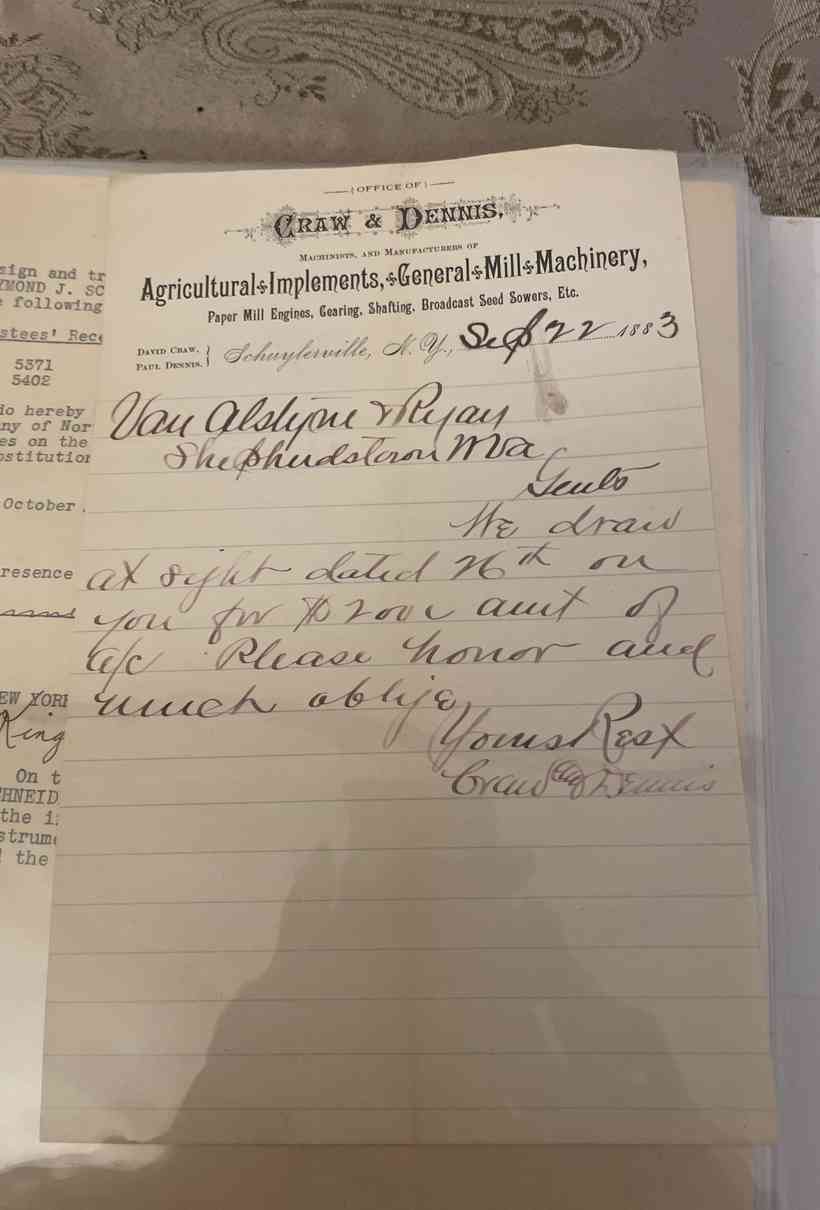 OFFICE OF
CRAW & DENNIS,
MACHINISTS, AND MANUFACTURERS OF
Agricultural Implements, General Mill Machinery,
Paper Mill Engines, Gearing, Shafting, Broadcast Seed Sowers, Etc.
DAVID CRAW.
PAUL DENNIS.
Schuylerville, N. Y., Sep 22 1883
Van Alstyne & Ryan
Shepherdstown
Gents
We draw
at sight dated 26th on
you for $ amt of
a/c Please honor and
much oblige
Yours Rest
Craw & Dennis
sign and tr
YMOND J. SC
e following
stees' Rece
5371
5402
do hereby
ny of Nor
es on the
stitution
October
resence
EW YORK
King
On t
HNEID
the i
strum
the